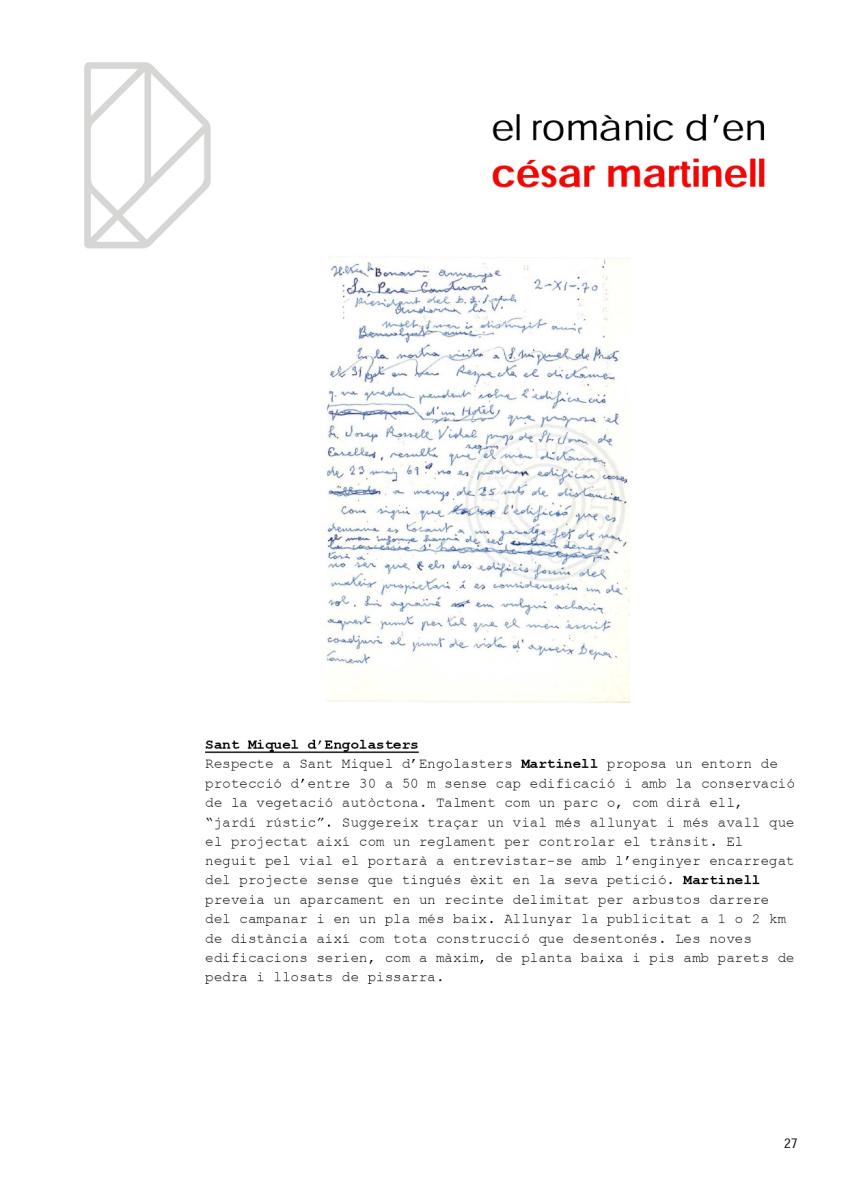 el romànic d'en
césar martinell
2-XI-70
President del
Andorra la V.
Molt distingit amic
En la nostra visita a S. Miquel de Prats
el 31 Respecte el dictamen
q. va quedar pendent sobre l'edificació
d'un Hotel, que proposa el
Sr. Josep Rossell Vidal prop de St. Joan de
Caselles, resulta que segons el meu dictamen
de 23 maig 69 no es podran edificar cases
a menys de 25 mts de distancia.
Com sigui que l'edifició que es
demana es tocant a un garatge fet de nou,
el meu informe hauria de ser denega-
tori a
no ser que els dos edificis fossin del
mateix propietari i es consideressin un de
sol. Li agrairé em vulgui aclarir
aquest punt per tal que el meu escrit
coadjuvi al punt de vista d'aqueix Depar-
tament
Sant Miquel d'Engolasters
Respecte a Sant Miquel d'Engolasters Martinell proposa un entorn de
protecció d'entre 30 a 50 m sense cap edificació i amb la conservació
de la vegetació autòctona. Talment com un parc o, com dirà ell,
“jardí rústic”. Suggereix traçar un vial més allunyat i més avall que
el projectat així com un reglament per controlar el trànsit. El
neguit pel vial el portarà a entrevistar-se amb l'enginyer encarregat
del projecte sense que tingués èxit en la seva petició. Martinell
preveia un aparcament en un recinte delimitat per arbustos darrere
del campanar i en un pla més baix. Allunyar la publicitat a 1 o 2 km
de distància així com tota construcció que desentonés. Les noves
edificacions serien, com a màxim, de planta baixa i pis amb parets de
pedra i llosats de pissarra.
27